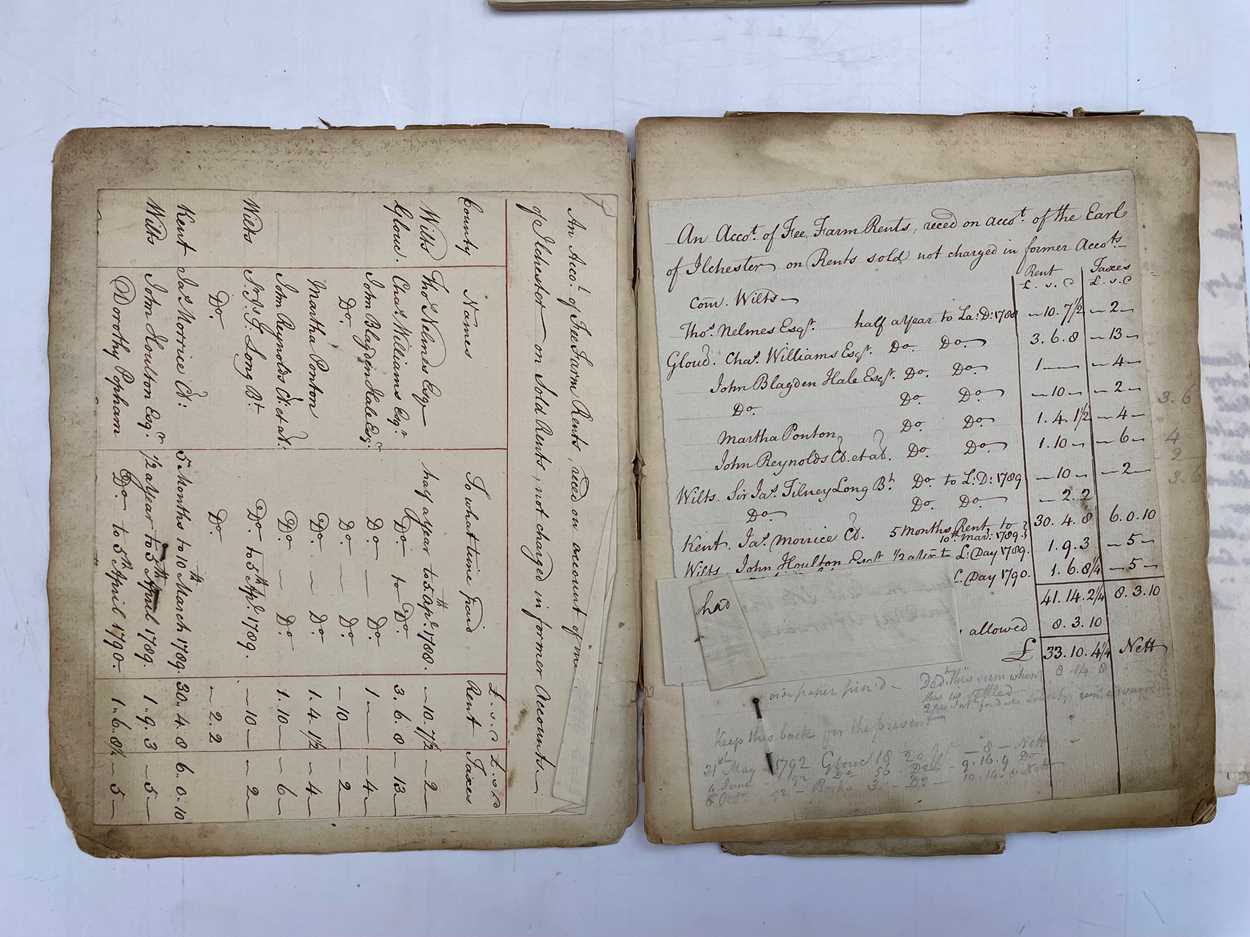 An Acco.t of Fee Farm Rents, reced on account of me
of Ilchester on Sold Rents, not charged in former Accounts
County Names To what time paid Rent Taxes
£. s. d £. s. d
Wilts Tho.s Nelmes Esq.r half a year to 5 Ap.l 1788. — 10. 7 1/2 — 2 —
Glouc. Cha.s Williams Esq.r Do. to Do. 3. 6. 8 — 13 —
John Blagden Hale Esq.r Do. — Do. 1 — — 4 —
Do. Do. — Do. — 10 — — 2 —
Martha Ponton Do. — Do. 1. 4. 1 1/2 — 4 —
John Reynolds Cl. et al. Do. Do. 1. 10 — — 6 —
Wilts Sr. Js. T. Long Bt. Do. to 5th Apl. 1789. — 10 — — 2 —
Do. Do. — 2. 2
Kent Jas. Morrice Cl: 5 Months to 10th March 1789. 30. 4. 8 6. 0. 10
Wilts John Houlton Esqr. 1/2 a Year to 5th April 1789. 1. 9. 3 — 5 —
Dorothy Popham Do. to 5th April 1790. 1. 6. 8 1/4 — 5 —
An Acco.t of Fee Farm Rents, reced on acco.t of the Earl
of Ilchester on Rents sold not charged in former Accots.
Rent Taxes
£. s. d £. s. d
Com. Wilts
Tho.s Nelmes Esq.r half a Year to La: D: 1788 — 10. 7 1/2 — 2 —
Glouc. Cha.s Williams Esq.r Do. Do. 3. 6. 8 — 13 —
John Blagden Hale Esq.r Do. Do. 1 — — 4 —
Do. Do. Do. — 10 — — 2 —
Martha Ponton Do. Do. 1. 4. 1 1/2 — 4 —
John Reynolds Cl. et al. Do. Do. 1. 10 — — 6 —
Wilts Sir Jas. Tilney Long Bt. Do. to L: D: 1789 — 10 — — 2 —
Do. Do. Do. — 2. 2
Kent Jas. Morrice Cl. 5 Months Rent to 10th Mar: 1789. 30. 4. 8 6. 0. 10
Wilts John Houlton Esqr. 1/2 a Year to L: Day 1789. 1. 9. 3 — 5 —
L: Day 1790. 1. 6. 8 1/4 — 5 —
41. 14. 2 1/4 8. 3. 10
had
allowed 8. 3. 10
£ 33. 10. 4 1/4 Nett
paper pin'd — Ded. this sum when 8 14 8
this is settled
Keep this back for the present
21st May 1792 Glouc 18 — 8 — Nett
4 June 9. 16. 9 Do
3. 6
4
2
3. 6